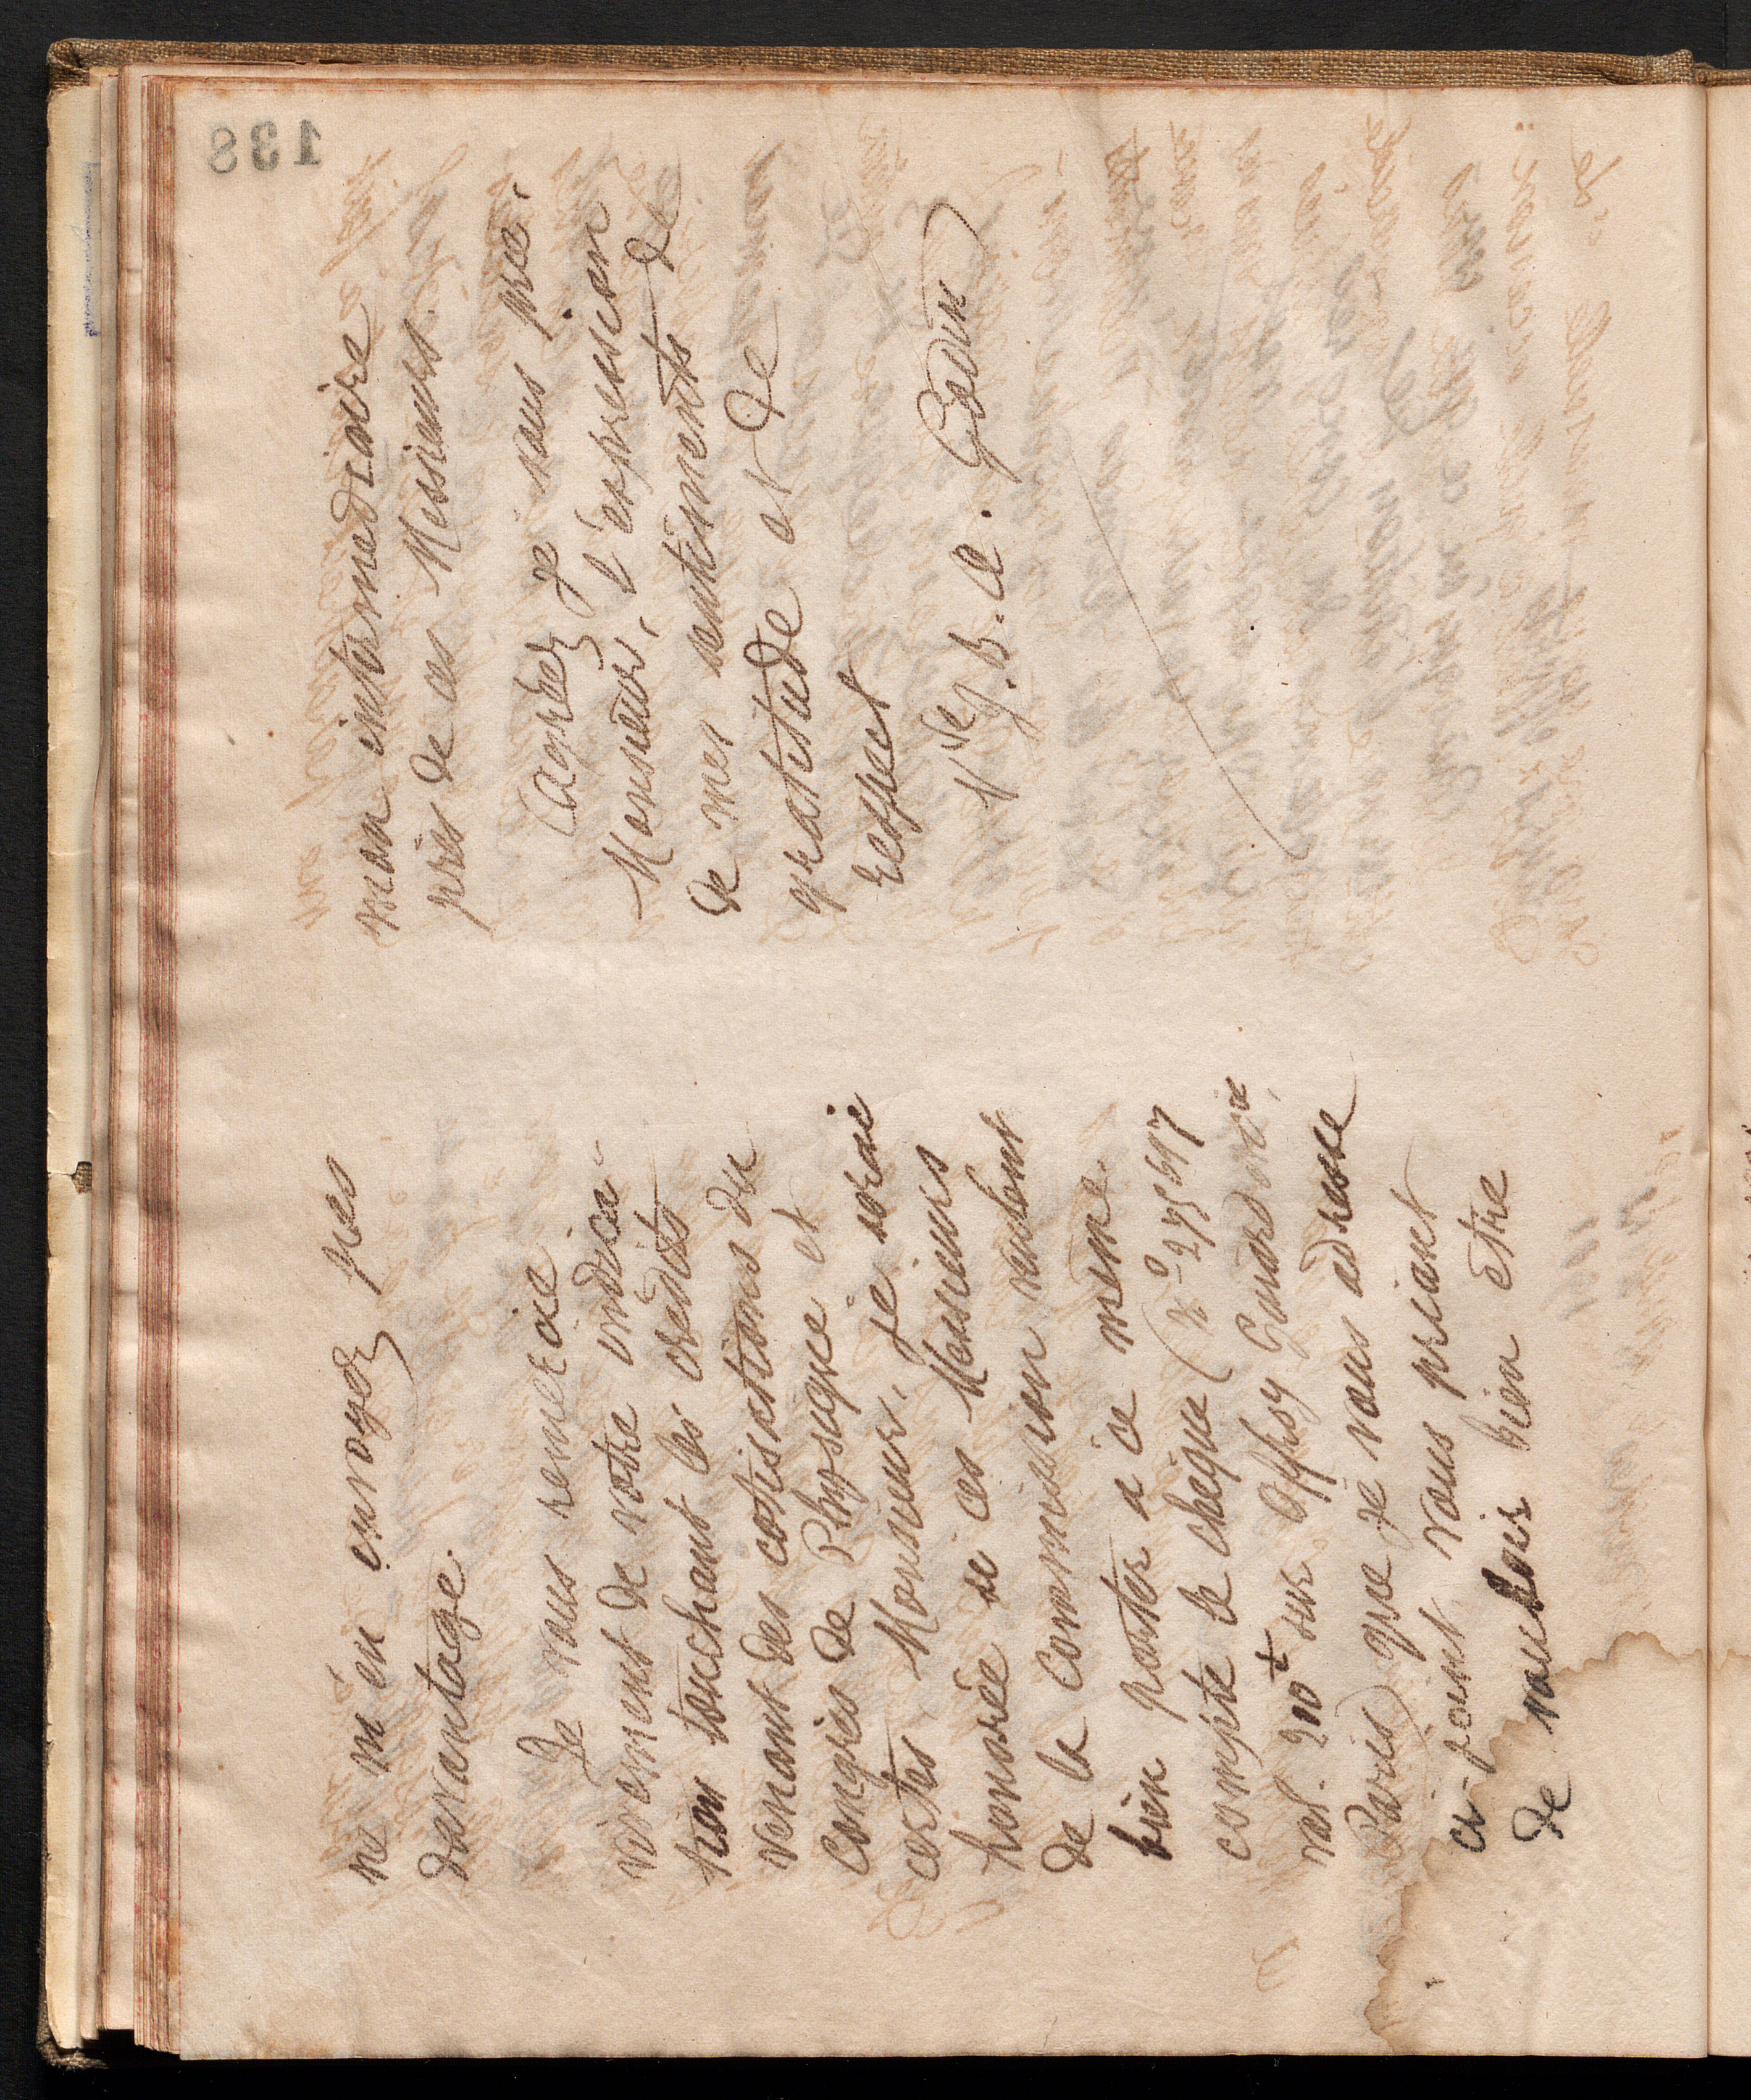 ne m'en envoyez pas
davantage.
Je vous remercie
vivement de votre indica-
tion touchant les crédits
venant des cotisations du
Congrès de Physique et
certes Monsieur, je serai
honorée si ces Messieurs
de la Commission veulent
bien porter à ce même
compte le chèque (n° 275617
val. 210 sur Offroy Guiard
Paris) que je vous adresse
ci-joint vous priant
de vouloir bien être
mon intermédiaire
près de ces Messieurs.
Agréez je vous prie,
Monsieur, l'expression
de mes sentiments de
gratitude et de
respect
Vve J. B. A. Godin
138